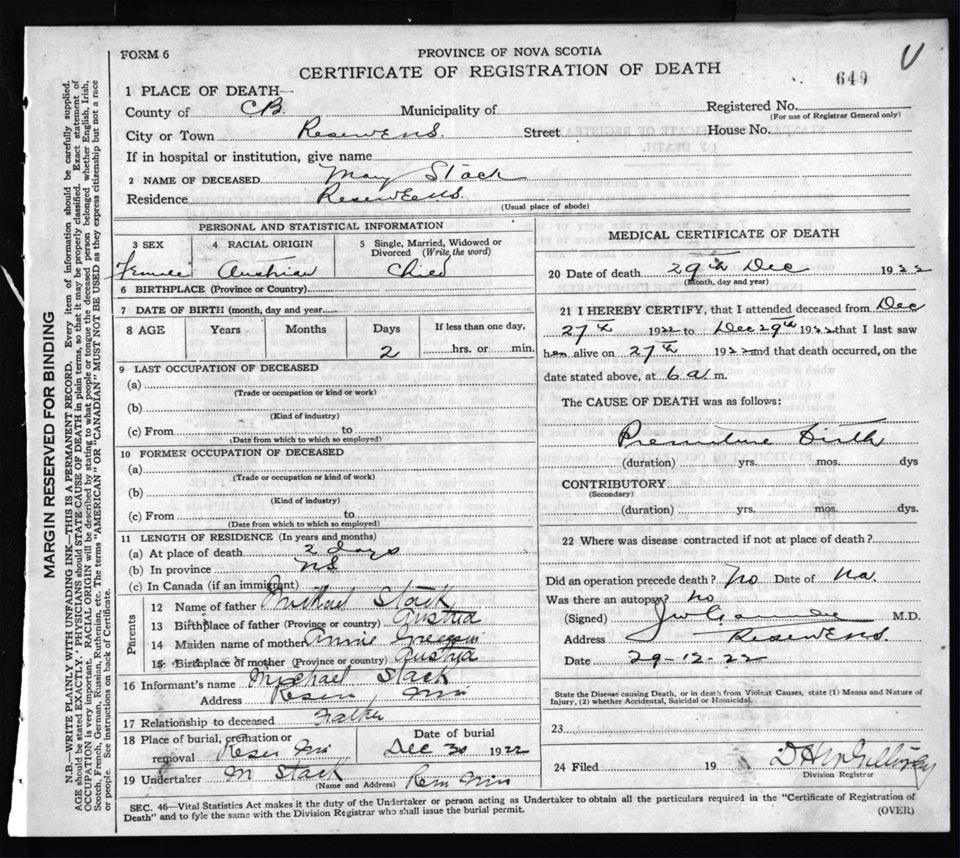 FORM 6
PROVINCE OF NOVA SCOTIA
CERTIFICATE OF REGISTRATION OF DEATH
649
1 PLACE OF DEATH—
County of C.B. Municipality of
Registered No.
(For use of Registrar General only)
City or Town Street House No.
If in hospital or institution, give name
2 NAME OF DECEASED Mary Stack
Residence
(Usual place of abode)
PERSONAL AND STATISTICAL INFORMATION
3 SEX 4 RACIAL ORIGIN 5 Single, Married, Widowed or Divorced (Write the word)
Female Austrian Child
6 BIRTHPLACE (Province or Country)
7 DATE OF BIRTH (month, day and year)
8 AGE Years Months Days If less than one day,
2 hrs. or min.
9 LAST OCCUPATION OF DECEASED
(a)
(Trade or occupation or kind or work)
(b)
(Kind of industry)
(c) From to
(Date from which to which so employed)
10 FORMER OCCUPATION OF DECEASED
(a)
(Trade or occupation or kind or work)
(b)
(Kind of industry)
(c) From to
(Date from which to which so employed)
11 LENGTH OF RESIDENCE (In years and months)
(a) At place of death 2 days
(b) In province NS
(c) In Canada (if an immigrant)
Parents
12 Name of father Michael Stack
13 Birthplace of father (Province or country) Austria
14 Maiden name of mother Annie
15 Birthplace of mother (Province or country) Austria
16 Informant's name Michael Stack
Address
17 Relationship to deceased Father
18 Place of burial, cremation or removal
Date of burial
Dec 30 1922
19 Undertaker M Stack
(Name and Address)
MEDICAL CERTIFICATE OF DEATH
20 Date of death 29th Dec 1922
(Month, day and year)
21 I HEREBY CERTIFY, that I attended deceased from Dec
27th 1922 to Dec 29th 1922 that I last saw
her alive on 27th 1922 and that death occurred, on the
date stated above, at 6 a m.
The CAUSE OF DEATH was as follows:
Premature Birth
(duration) yrs. mos. dys
CONTRIBUTORY
(Secondary)
(duration) yrs. mos. dys.
22 Where was disease contracted if not at place of death?
Did an operation precede death? No Date of na
Was there an autopsy? No
(Signed) M.D.
Address
Date 29-12-22
State the Disease causing Death, or in death from Violent Causes, state (1) Means and Nature of
Injury, (2) whether Accidental, Suicidal or Homicidal.
23
24 Filed 19
Division Registrar
SEC. 46—Vital Statistics Act makes it the duty of the Undertaker or person acting as Undertaker to obtain all the particulars required in the "Certificate of Registration of
Death" and to fyle the same with the Division Registrar who shall issue the burial permit.
(OVER)
MARGIN RESERVED FOR BINDING
N.B.—WRITE PLAINLY WITH UNFADING INK—THIS IS A PERMANENT RECORD. Every item of information should be carefully supplied.
AGE should be stated EXACTLY. PHYSICIANS should STATE CAUSE OF DEATH in plain terms, so that it may be properly classified. Exact statement of
OCCUPATION is very important. RACIAL ORIGIN will be described by stating to what people or tongue the deceased person belonged whether English, Irish,
Scotch, French, German, Russian, Ruthenian, etc. The terms "AMERICAN" OR "CANADIAN" MUST NOT BE USED as they express citizenship but not a race
or people. See instructions on back of Certificate.